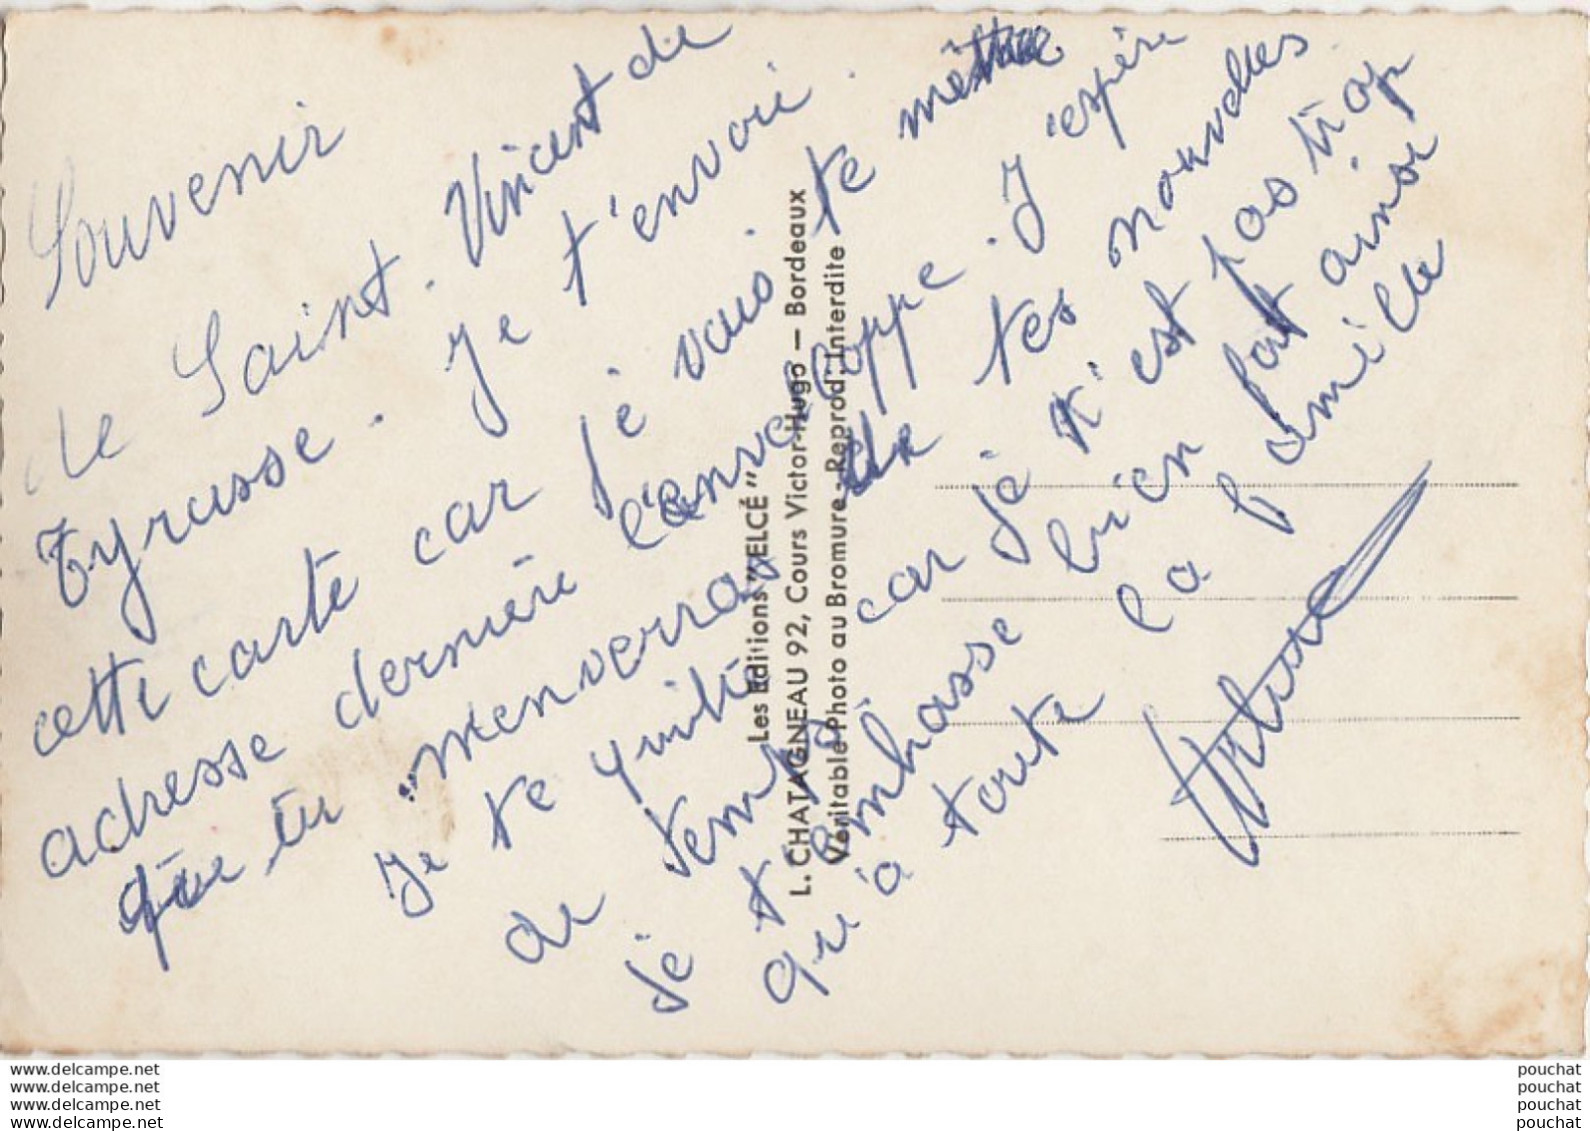 Souvenir
de Saint. Vincent de
Tyrosse. Je t'envoi.
cette carte car Je vais te mêttre
adresse dernière l'enveloppe. J'espère
que tu "m'enverras de tes nouvelles
Je te quitte car je n'est pas trop
de temps
je t'embrasse bien fort ainsi
qu'a toute la famille
Les Editions "ELCÉ"
L. CHATAGNEAU 92, Cours Victor-Hugo — Bordeaux
Véritable Photo au Bromure - Reprod. Interdite
www.delcampe.net
www.delcampe.net
www.delcampe.net
www.delcampe.net
pouchat
pouchat
pouchat
pouchat